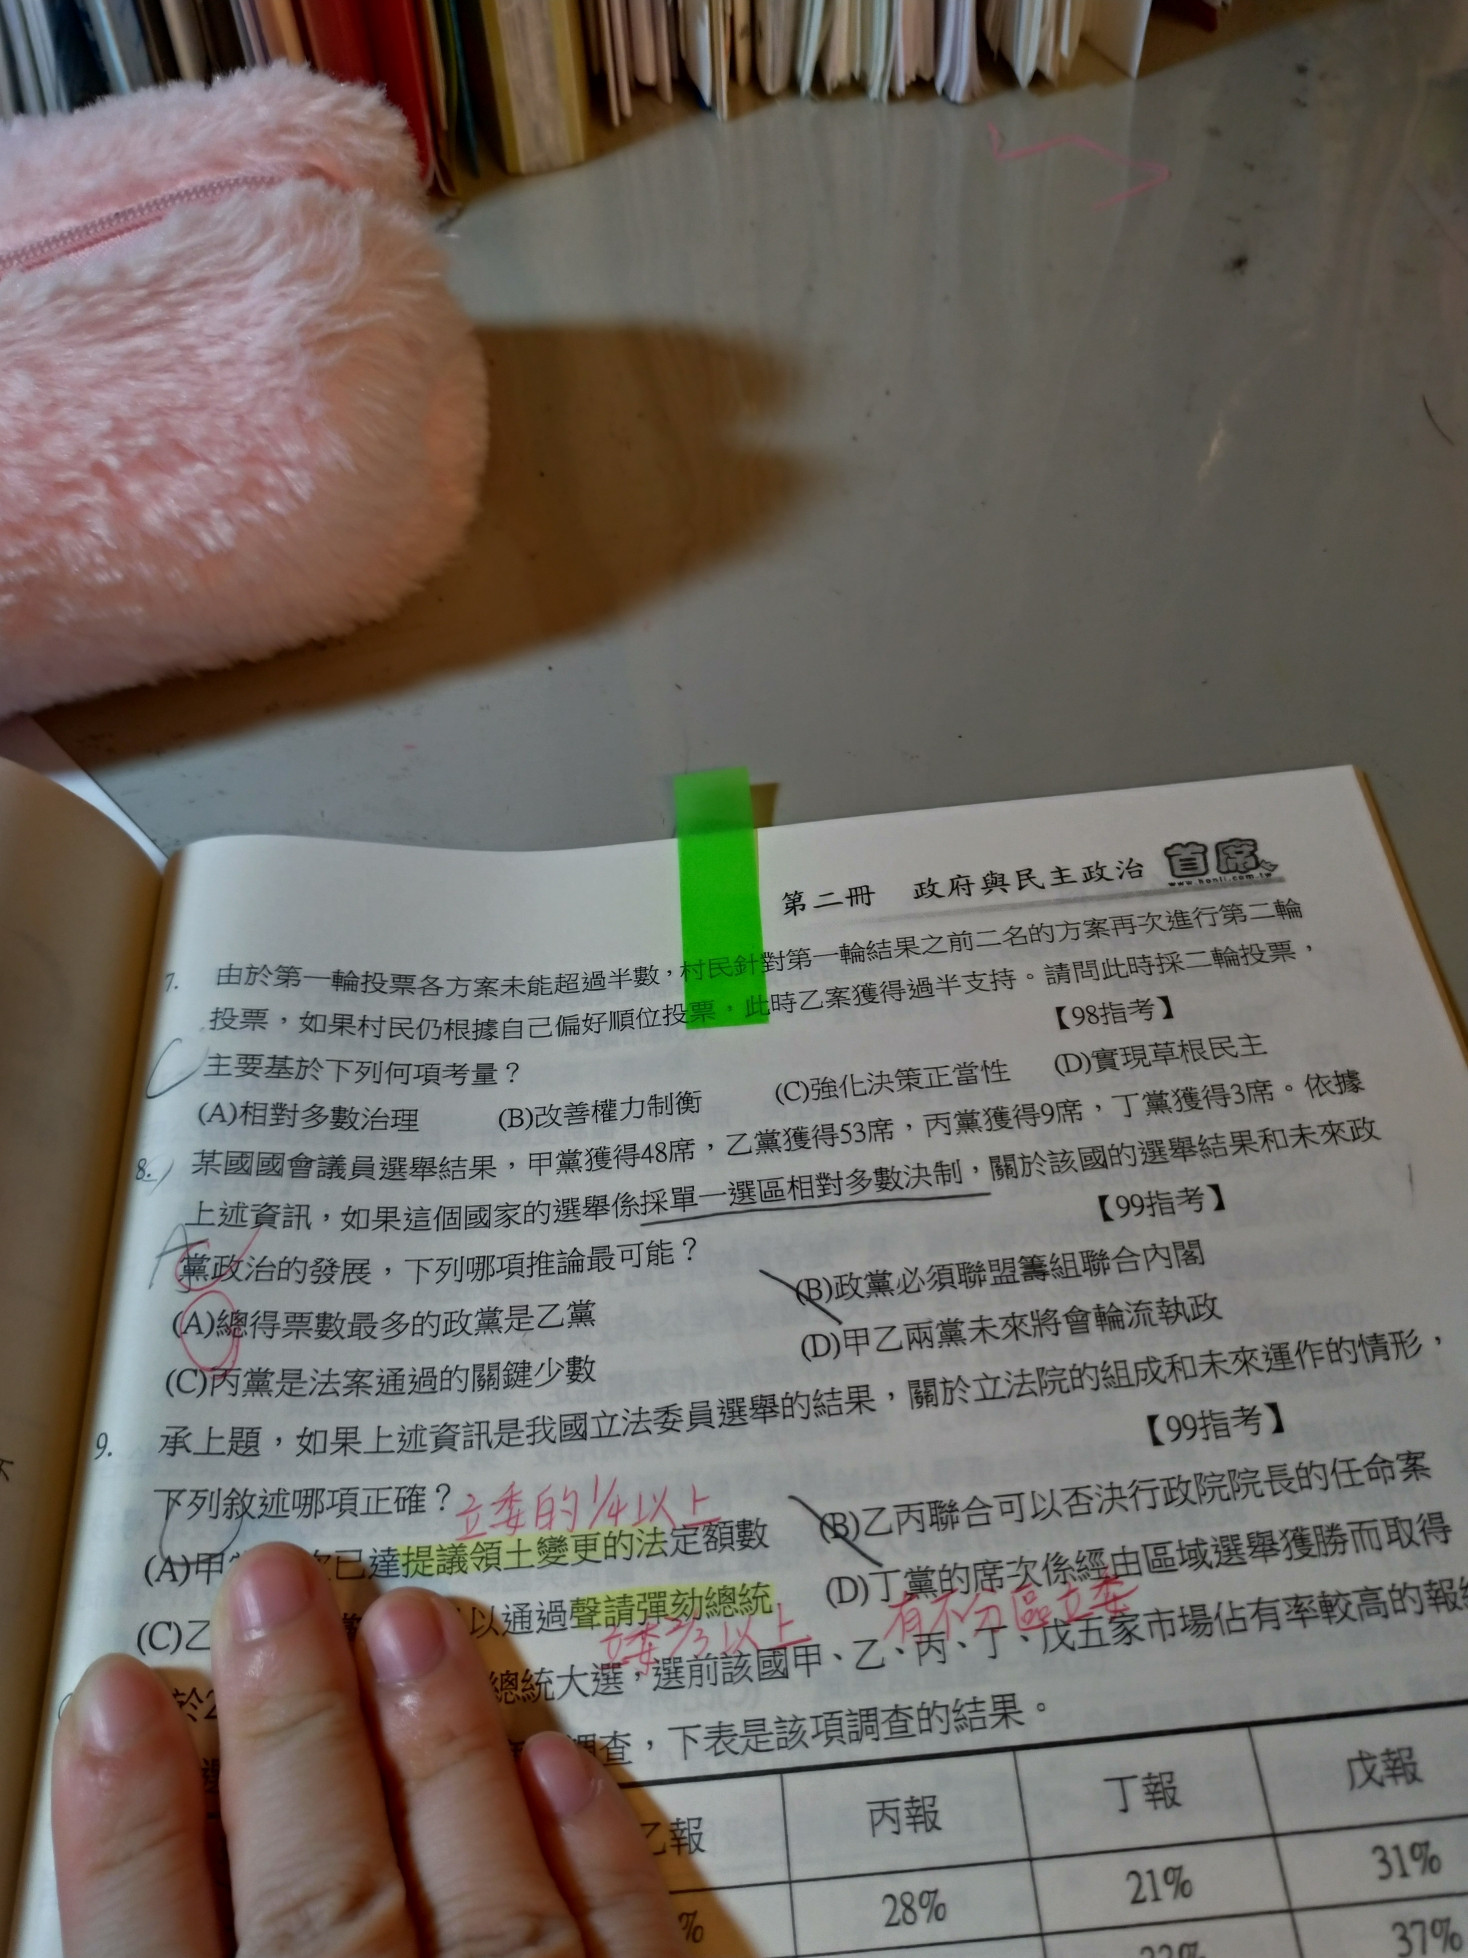 第二冊 政府與民主政治 首席
www.hanli.com.tw
7. 由於第一輪投票各方案未能超過半數，村民針對第一輪結果之前二名的方案再次進行第二輪
投票，如果村民仍根據自己偏好順位投票，此時乙案獲得過半支持。請問此時採二輪投票，
主要基於下列何項考量？ 【98指考】
C
(A)相對多數治理 (B)改善權力制衡 (C)強化決策正當性 (D)實現草根民主
8. 某國國會議員選舉結果，甲黨獲得48席，乙黨獲得53席，丙黨獲得9席，丁黨獲得3席。依據
上述資訊，如果這個國家的選舉係採單一選區相對多數決制，關於該國的選舉結果和未來政
黨政治的發展，下列哪項推論最可能？ 【99指考】
A
(A)總得票數最多的政黨是乙黨 (B)政黨必須聯盟籌組聯合內閣
(C)丙黨是法案通過的關鍵少數 (D)甲乙兩黨未來將會輪流執政
9. 承上題，如果上述資訊是我國立法委員選舉的結果，關於立法院的組成和未來運作的情形，
下列敘述哪項正確？ 【99指考】
立委的1/4以上
(A)甲 已達提議領土變更的法定額數 (B)乙丙聯合可以否決行政院院長的任命案
(C)乙 以通過聲請彈劾總統 (D)丁黨的席次係經由區域選舉獲勝而取得
立委2/3以上 有不分區立委
於2 總統大選，選前該國甲、乙、丙、丁、戊五家市場佔有率較高的報
調查，下表是該項調查的結果。
乙報 丙報 丁報 戊報
% 28% 21% 31%
37%